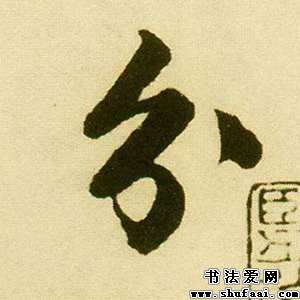 分
书法爱网
www.shufaai.com